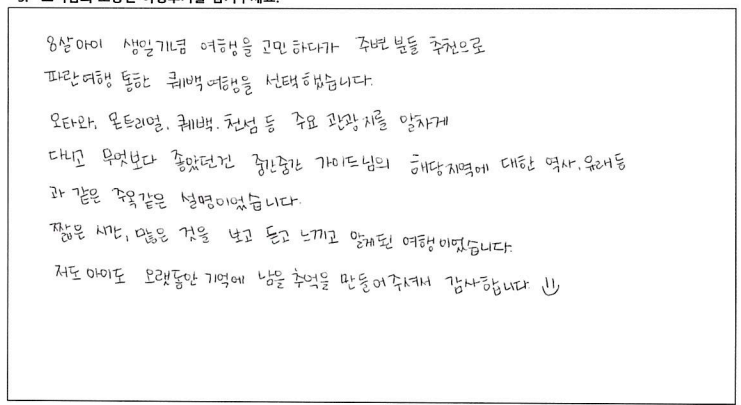 8살아이 생일기념 여행을 고민하다가 주변 분들 추천으로
파란여행 통한 퀘백여행을 선택했습니다.
오타와, 몬트리얼, 퀘백, 천섬 등 주요 관광지를 알차게
다니고 무엇보다 좋았던건 중간중간 가이드님의 해당지역에 대한 역사, 유래등
과 같은 주옥같은 설명이었습니다.
짧은 시간, 많은 것을 보고 듣고 느끼고 알게된 여행이었습니다.
저도 아이도 오랫동안 기억에 남을 추억을 만들어주셔서 감사합니다